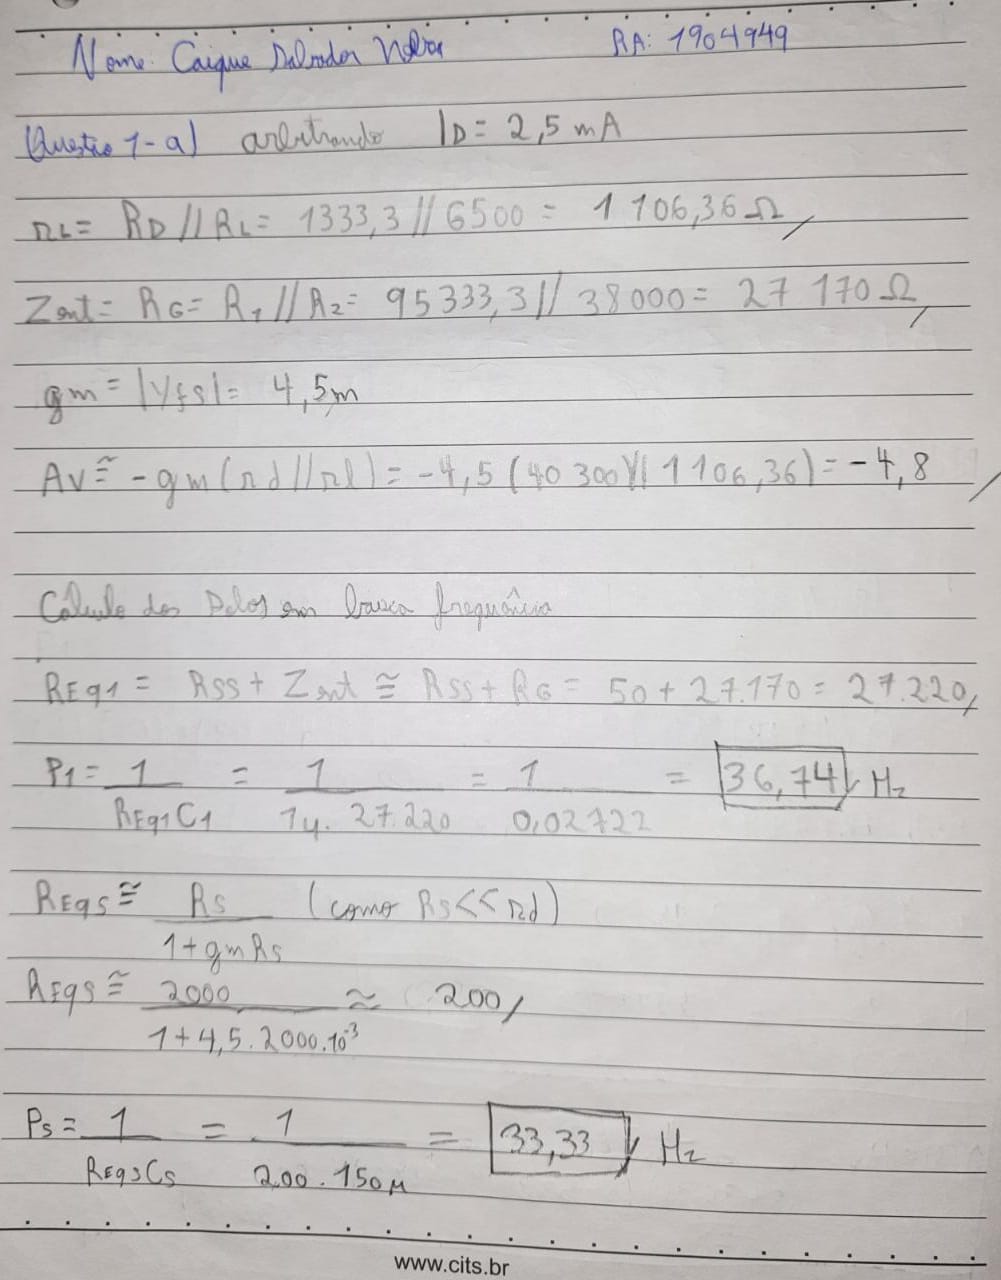 Nome: Caique Salvador Nobre RA: 1904949
Questão 1-a) arbitrando ID = 2,5 mA
RL = RD // RL = 1333,3 // 6500 = 1 106,36 Ω
Zent = RG = R1 // R2 = 95333,3 // 38000 = 27 170 Ω
gm = |Yfs| = 4,5m
Av ≅ -gm (rd // rl) = -4,5 (40 300 // 1 106,36) = -4,8
Cálculo dos Polos em baixa frequência
REq1 = RSS + Zent ≅ RSS + RG = 50 + 27.170 = 27.220
P1 = 1 = 1 = 1 = 36,74 Hz
REq1 C1 1µ. 27.220 0,02722
REqS ≅ RS (como RS << rd)
1 + gm RS
REqS ≅ 2000 ≈ 200
1 + 4,5 . 2000.10^-3
PS = 1 = 1 = 33,33 Hz
REqS CS 200 . 150µ
www.cits.br